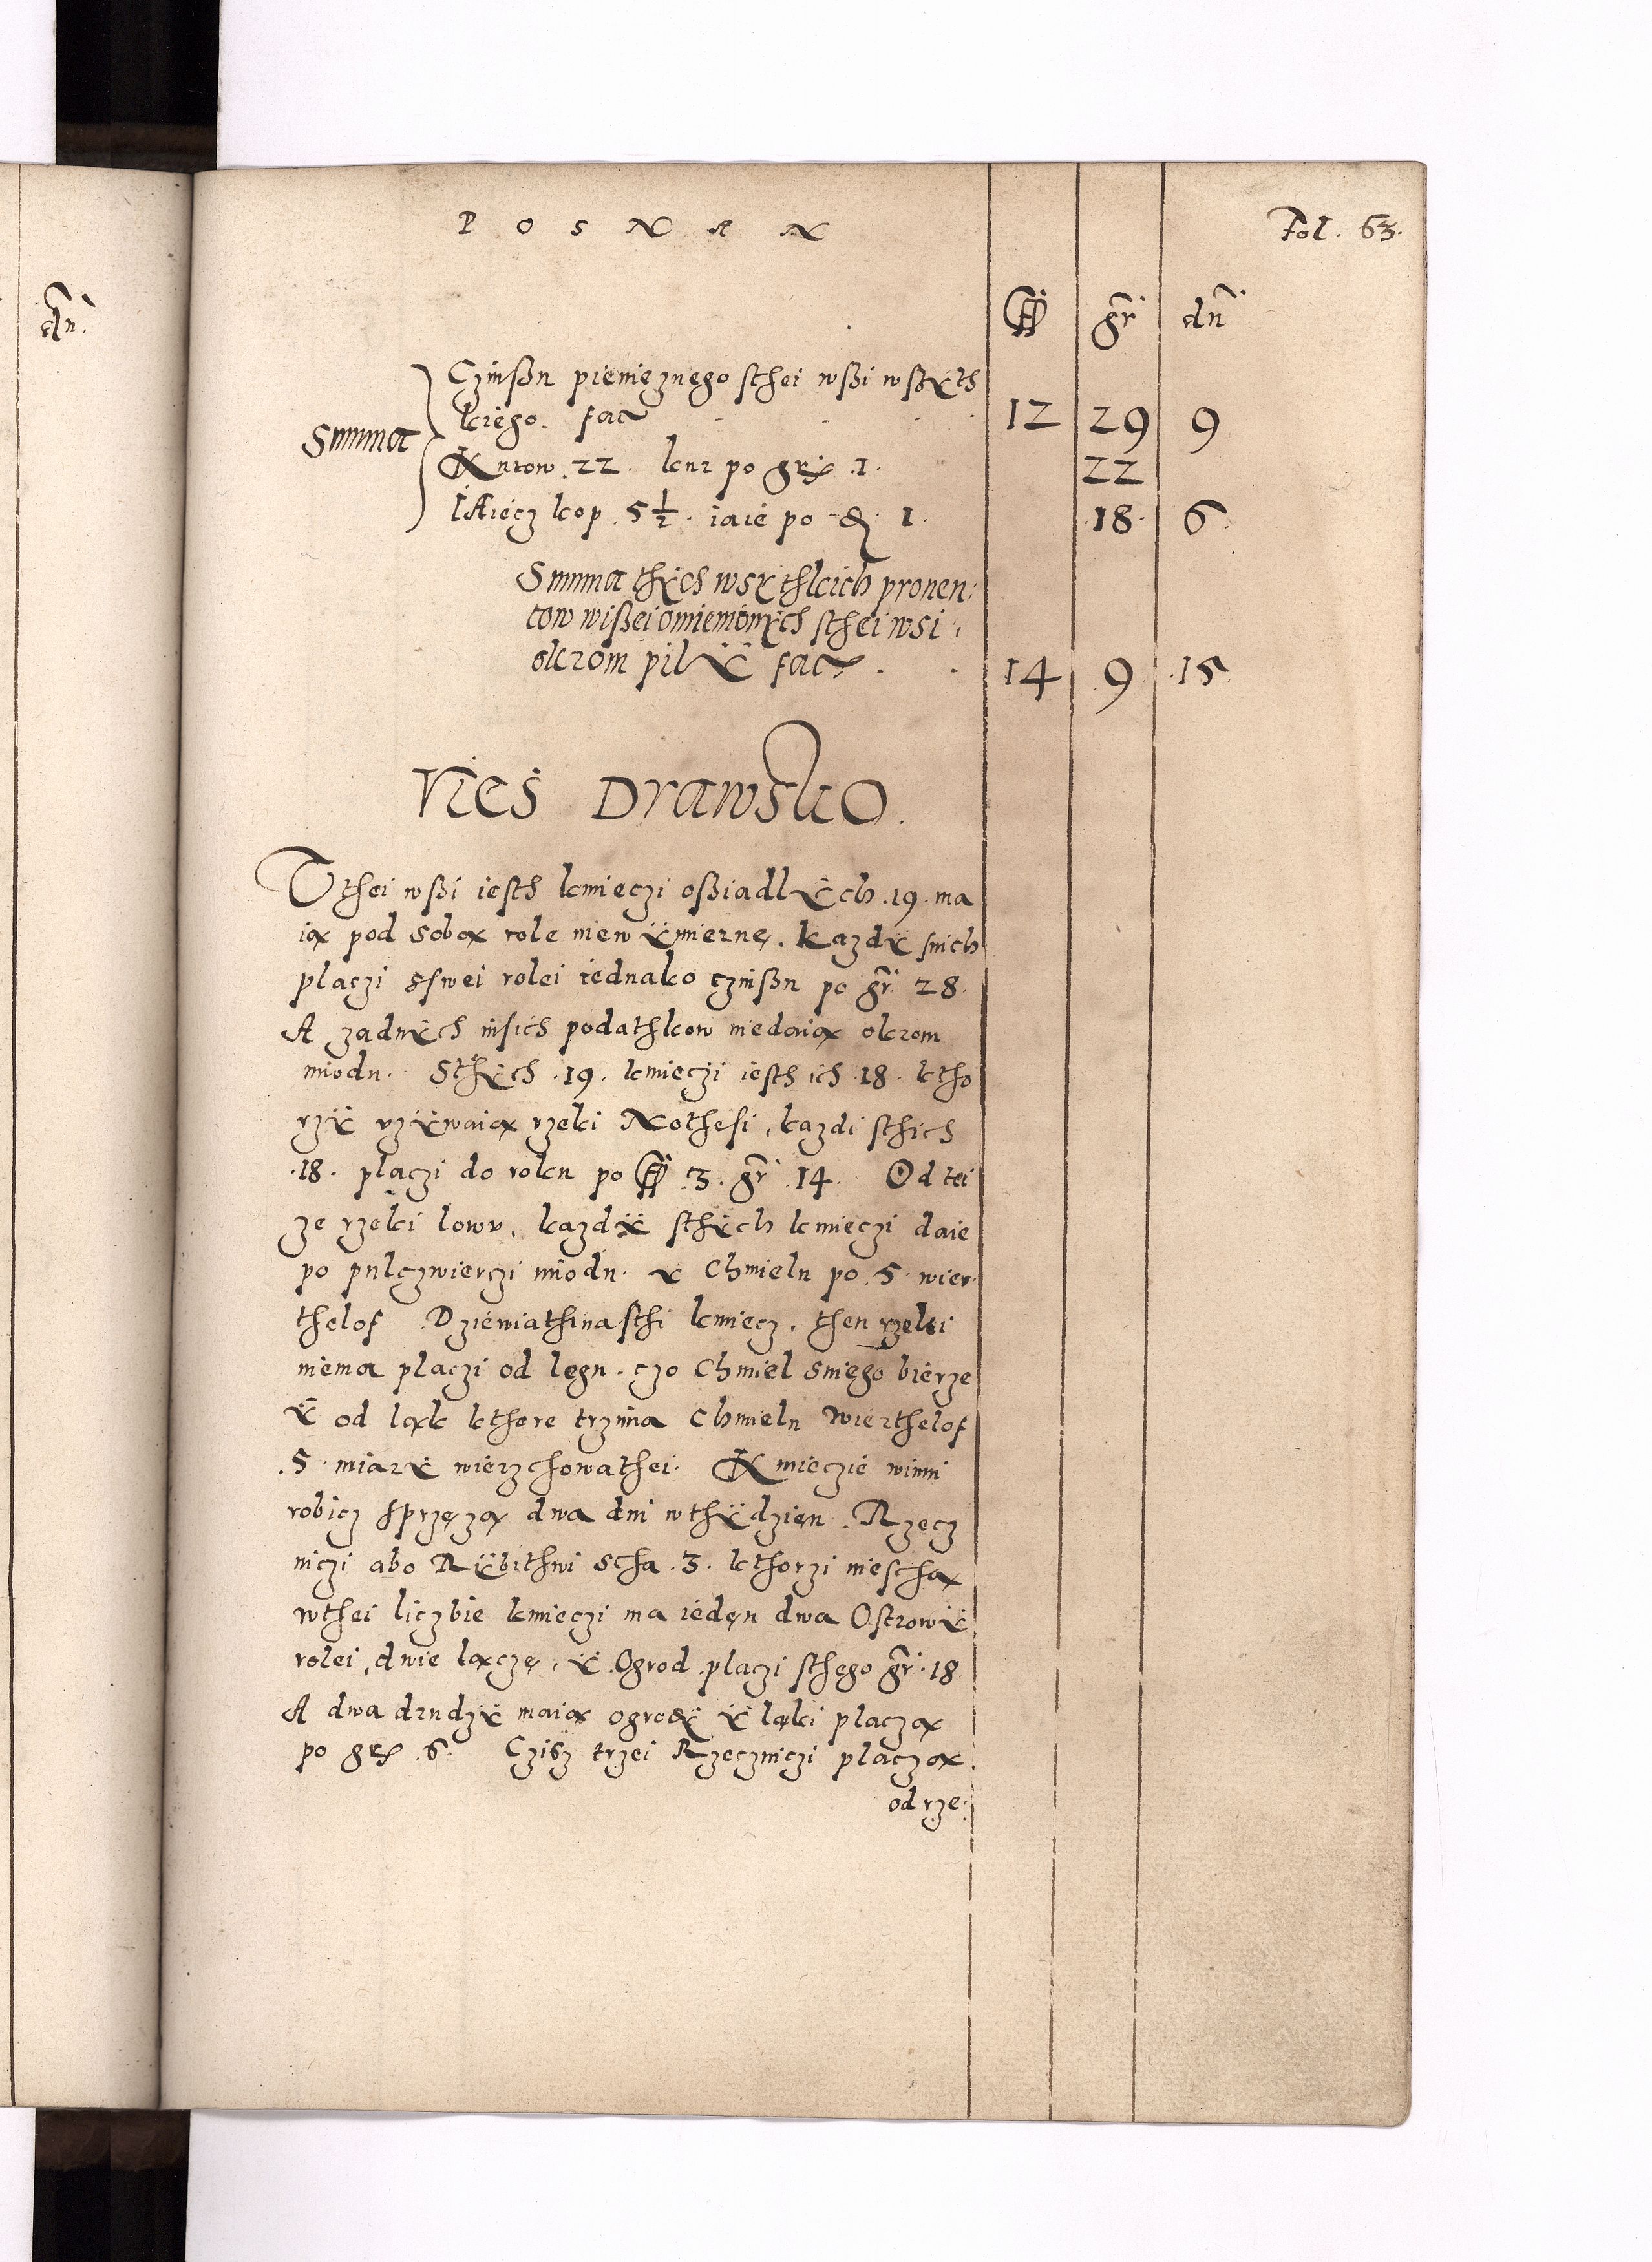 POSNAN
Fol. 63.
dn.
ff gr dn
Czinßu pienięznego sthei wßi wßÿth
kiego. facit 12 29 9
Summa
Kurow. 22. kur po grß .1. 22
IAiecz kop. 5½. iaie po d. 1. 18. 6.
Summa thÿch wsÿthkich prouen:
tow wißei omienionÿch sthei wsi
okrom pilÿ facit. 14 9 15
Vies Drawsko.
Vthei wßi iesth kmieczi oßiadlÿch .19. ma
iąx pod sobą role niewÿmiernę. Kazdÿ snich
placzi sswei rolei iednako czinßu po gr 28.
A zadnÿch insich podathkow niedaią okrom
miodu. Sthÿch .19. kmieczi iesth ich .18. ktho
rzÿ vzÿwaią rzeki Nothesi, kazdi sthich
.18. placzi do roku po ff .3. gr .14. Od tei
ze rzeki lowu, kazdÿ sthÿch kmieczi daie
po pulczwierczi miodu. ÿ Chmielu po .5. wier:
thelof. Dziewiathinasthi kmiecz, then rzeki
niema placzi od legu. czo Chmiel sniego bierze
ÿ od ląk kthore trzima Chmielu Wierthelof
.5. miarÿ wierzchowathei. Kmieczie winni
robicz sprzęzą dwa dni wthÿdzien. Rzecz
niczi abo Rÿbithwi scha .3. kthorzi nieschą
wthei liczbie kmieczi ma ieden dwa Ostrowÿ
rolei, dwie łączę, ÿ Ogrod placzi sthego gr .18
A dwa drudzÿ maią ogrodÿ ÿ ląki placzą
po grß .6. Czisz trzei Rzeczniczi placzą.
od rze: